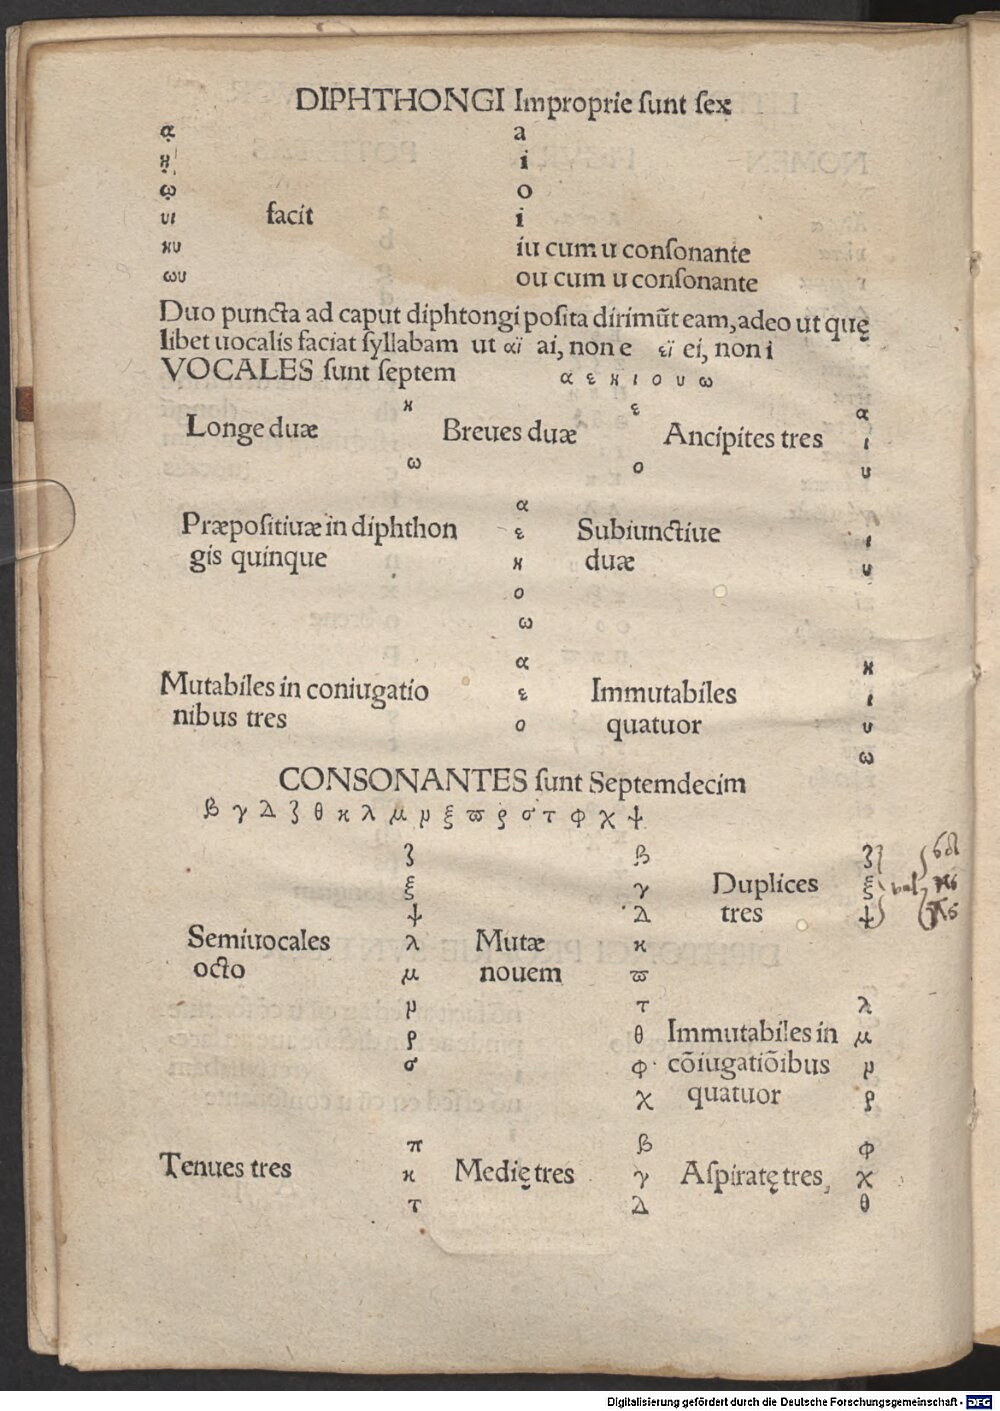 DIPHTHONGI Improprie ſunt ſex
ᾳ a
ῃ i
ῳ o
υι facit i
ηυ iu cum u conſonante
ωυ ou cum u conſonante
Duo puncta ad caput diphtongi poſita dirimūt eam, adeo ut quę
libet uocalis faciat ſyllabam ut αϊ ai, non e εϊ ei, non i
VOCALES ſunt ſeptem α ε η ι ο υ ω
η ε α
Longe duæ Breues duæ Ancipites tres ι
ω ο υ
α
Præpoſitiuæ in diphthon ε Subiunctiue ι
gis quinque η duæ υ
ο
ω
α η
Mutabiles in coniugatio ε Immutabiles ι
nibus tres ο quatuor υ
ω
CONSONANTES ſunt Septemdecim
β γ Δ ζ θ κ λ μ ν ξ ϖ ρ σ τ φ χ ψ
ζ β ζ
ξ γ Duplices ξ
ψ Δ tres ψ
Semiuocales λ Mutæ κ
octo μ nouem ϖ
ν τ λ
ρ θ Immutabiles in μ
σ φ cōiugatiōibus ν
χ quatuor ρ
π β φ
Tenues tres κ Medię tres γ Aſpiratę tres, χ
τ Δ θ
Digitalisierung gefördert durch die Deutsche Forschungsgemeinschaft - DFG